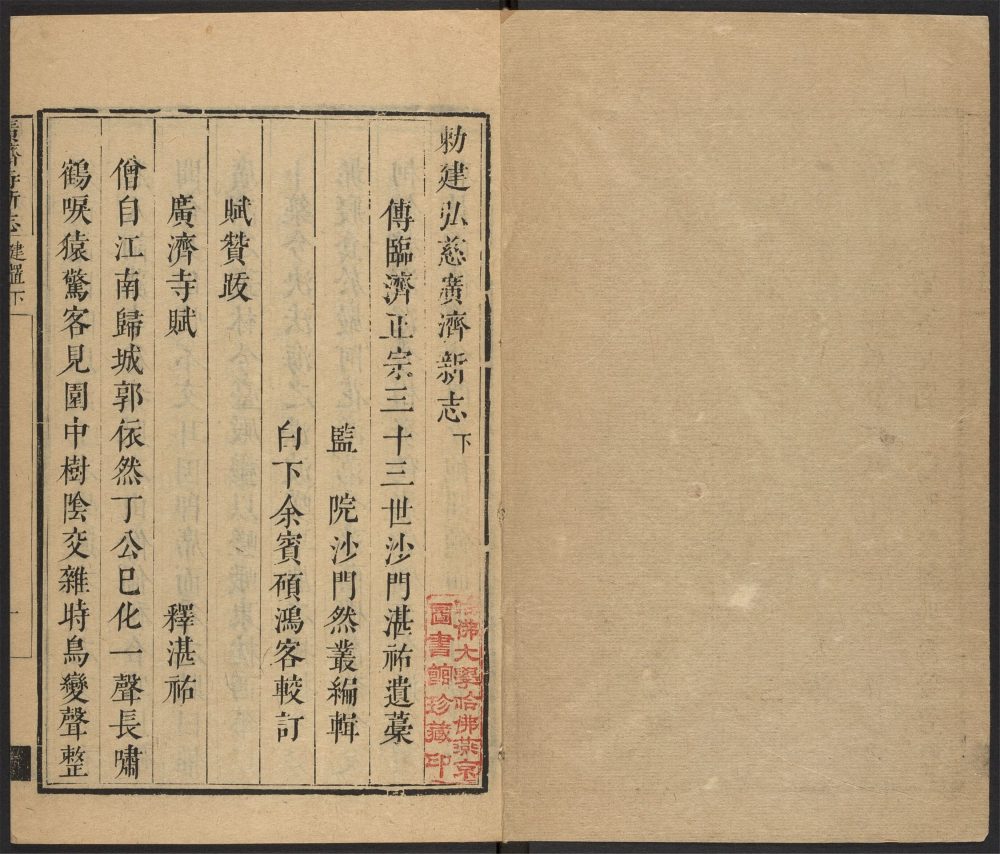 勅建弘慈廣濟新志下
傳臨濟正宗三十三世沙門湛祐遺藁
監院沙門然叢編輯
白下余賓碩鴻客較訂
賦贊跋
廣濟寺賦 釋湛祐
僧自江南歸城郭依然丁公已化一聲長嘯
鶴唳猿驚客見園中樹陰交雜時鳥變聲整
廣濟寺新志 建置下 一
哈佛大學哈佛燕京圖書館珍藏印